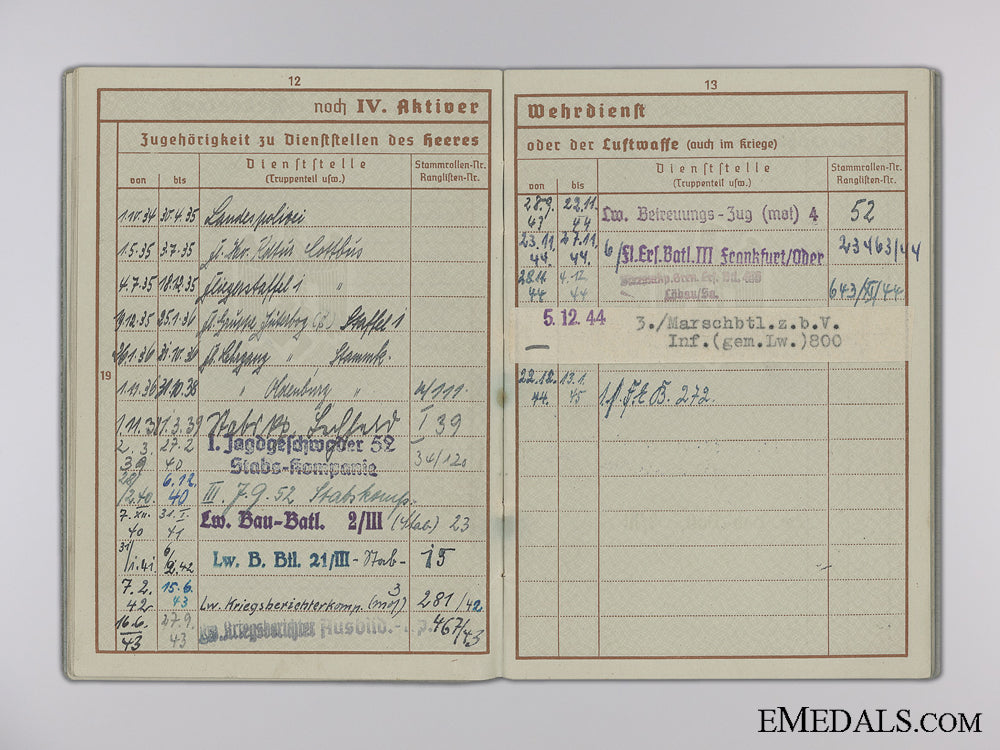 12
noch IV. Aktiver
Zugehörigkeit zu Dienststellen des Heeres
von bis
Dienststelle
(Truppenteil usw.)
Stammrollen-Nr.
Ranglisten-Nr.
19
1.10.34 30.4.35 Landespolizei
1.5.35 3.7.35 Cottbus
4.7.35 18.12.35 Fliegerstaffel 1 "
19.12.35 25.1.36 Fl. Gruppe Jüterbog Staffel 1
26.1.36 Fl. Lehrgang " Stammk.
1.11.36 31.10.38 " Oldenburg "
1.11.38 1.3.39 Stabskp. Lechfeld I 39
2.3.39 27.2.40 I. Jagdgeschwader 52
Stabs-Kompanie 34/120
28/2.40. 6.12.40 III. J.G. 52 Stabskomp.
7.XII.40 31.I.41 Lw. Bau-Batl. 2/III (Stab) 23
31/1.41. 6/2.42 Lw. B. Btl. 21/III - Stab - 15
7.2.42 15.6.43 Lw. Kriegsberichterkomp. (mot) 3 281/42
16.6.43 27.9.43 Lw. Kriegsberichter Ausbild.- 467/43
13
Wehrdienst
oder der Luftwaffe (auch im Kriege)
von bis
Dienststelle
(Truppenteil usw.)
Stammrollen-Nr.
Ranglisten-Nr.
28.9.43 22.11.44 Lw. Betreuungs-Zug (mot) 4 52
23.11.44. 27.11.44. 6/Fl.Ers.Batl.III Frankfurt/Oder 23463/44
28.11.44 4.12.44 Löbau/Sa. 643/II/44
5.12.44 3./Marschbtl.z.b.V.
Inf.(gem.Lw.)800
22.12.44. 13.1.45 272.
EMEDALS.COM